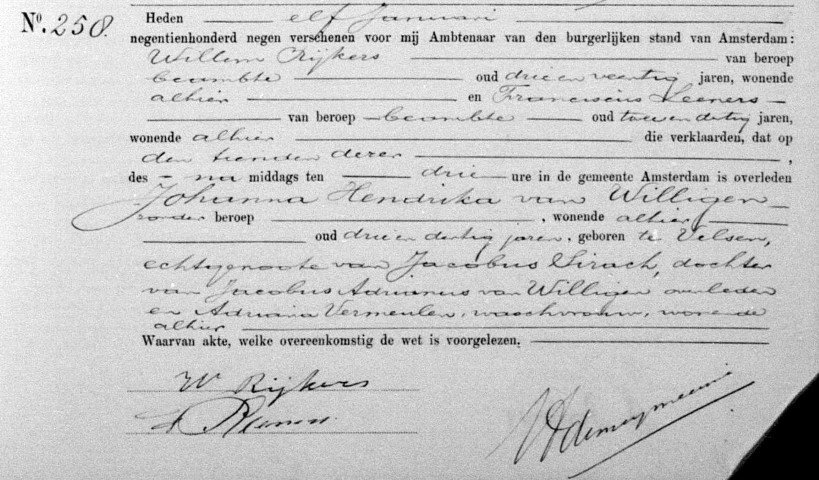 No. 258.
Heden elf Januari
negentienhonderd negen verschenen voor mij Ambtenaar van den burgerlijken stand van Amsterdam:
Willem Rijkers van beroep
beambte oud drie en veertig jaren, wonende
alhier en Franciscus Leeners
van beroep beambte oud twee en dertig jaren,
wonende alhier die verklaarden, dat op
den tienden dezer,
des na middags ten drie ure in de gemeente Amsterdam is overleden
Johanna Hendrika van Willigen
zonder beroep, wonende alhier
oud drie en dertig jaren, geboren te Velsen,
echtgenoote van Jacobus Sirach, dochter
van Jacobus Adrianus van Willigen overleden
en Adriana Vermeulen, waschvrouw, wonende
alhier
Waarvan akte, welke overeenkomstig de wet is voorgelezen.
W Rijkers